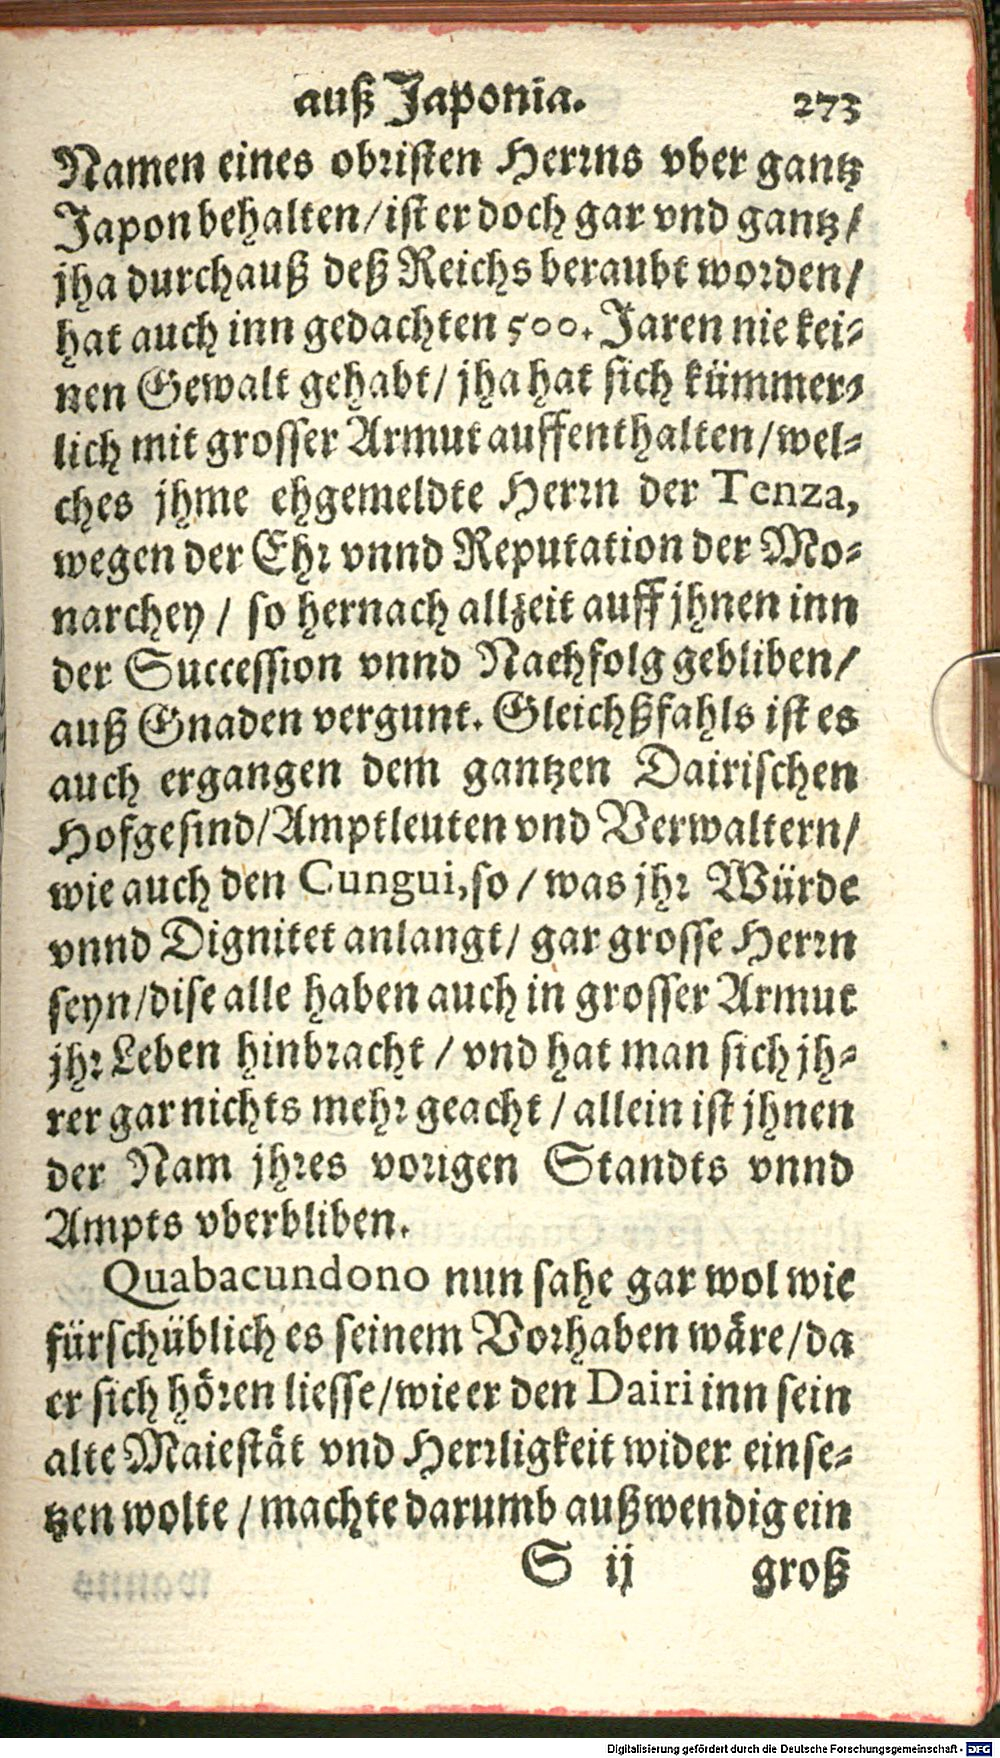 auß Japonia. 273
Namen eines obristen Herrns vber gantz
Japon behalten/ ist er doch gar vnd gantz/
jha durchauß deß Reichs beraubt worden/
hat auch inn gedachten 500. Jaren nie kei-
nen Gewalt gehabt/ jha hat sich kümmer-
lich mit grosser Armut auffenthalten/ wel-
ches jhme ehgemeldte Herrn der Tenza,
wegen der Ehr vnnd Reputation der Mo-
narchey / so hernach allzeit auff jhnen inn
der Succession vnnd Nachfolg gebliben/
auß Gnaden vergunt. Gleichßfahls ist es
auch ergangen dem gantzen Dairischen
Hofgesind/ Amptleuten vnd Verwaltern/
wie auch den Cungui, so / was jhr Würde
vnnd Dignitet anlangt/ gar grosse Herrn
seyn/ dise alle haben auch in grosser Armut
jhr Leben hinbracht / vnd hat man sich jh-
rer gar nichts mehr geacht / allein ist jhnen
der Nam jhres vorigen Standts vnnd
Ampts vberbliben.
Quabacundono nun sahe gar wol wie
fürschüblich es seinem Vorhaben wäre/ da
er sich hören liesse/ wie er den Dairi inn sein
alte Maiestät vnd Herrligkeit wider einse-
tzen wolte / machte darumb außwendig ein
S ij groß
Digitalisierung gefördert durch die Deutsche Forschungsgemeinschaft - DFG